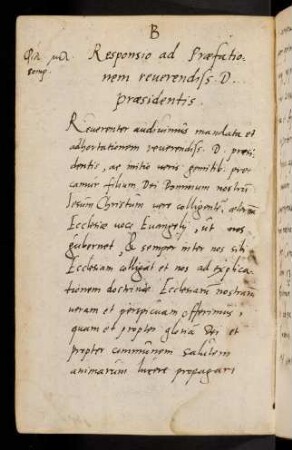 B
Responsio ad Præfatio-
nem reuerendiss. D.
præsidentis.
Reuerenter audiuimus mandata et
adhortationem reuerendiss. D. præsi-
dentis, ac initio ueris gemitib. pre-
camur filium Dei Dominum nostrum
Iesum Christum uere colligentē, æternā
Ecclesiæ uoce Euangelij, ut nos
gubernet, & semper inter nos sibi
Ecclesiam colligat et nos ad explica-
tionem doctrinæ Ecclesiarū nostrarum
ueram et perspicuam offerimus,
quam et propter gloriā Dei et
propter communem salutem
animarum lucere propagari